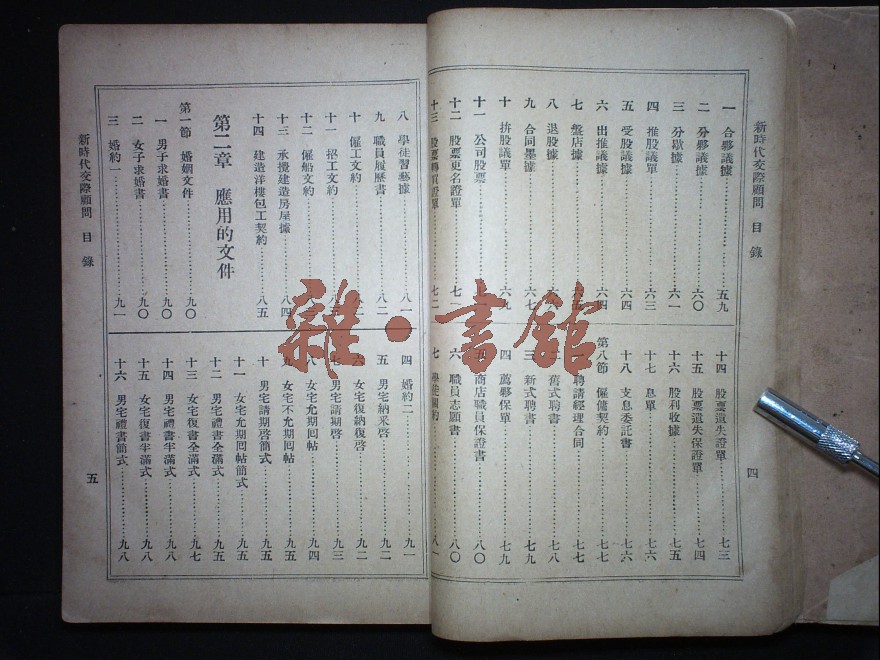 新時代交際顧問 目錄
一 合夥議據……五九
二 分夥議據……六〇
三 分歇據……六一
四 推股議單……六三
五 受股議據……六四
六 出推議據……六四
七 盤店據
八 退股據
九 合同墨據……六七
十 拚股議單……六九
十一 公司股票
十二 股票更名證單……七一
十三 股票轉買證單……七二
十四 股票遺失證單……七三
十五 股票遺失保證單……七四
十六 股利收據……七五
十七 息單……七六
十八 支息委託書……七六
第八節 僱傭契約……七七
一 聘請經理合同……七七
二 舊式聘書……七八
三 新式聘書……七九
四 薦夥保單……七九
五 商店職員保證書……八〇
六 職員志願書……八〇
七 學徒關約……八一
四
八 學徒習藝據……八一
九 職員履歷書……八二
十 僱工文約
十一 招工文約
十二 僱船文約
十三 承攬建造房屋據……八四
十四 建造洋樓包工契約……八五
第二章 應用的文件
第一節 婚姻文件……九〇
一 男子求婚書……九〇
二 女子求婚書……九〇
三 婚約一……九一
四 婚約二……九一
五 男宅納采啓……九二
六 女宅復納復啓……九二
七 男宅請期啓……九三
八 女宅允期回帖……九四
九 女宅不允期回帖……九五
十 男宅請期啓簡式……九五
十一 女宅允期回帖簡式……九五
十二 男宅禮書全滿式……九五
十三 女宅復書全滿式……九七
十四 男宅禮書半滿式……九八
十五 女宅復書半滿式……九八
十六 男宅禮書簡式……九八
新時代交際顧問 目錄
五
雜·書館